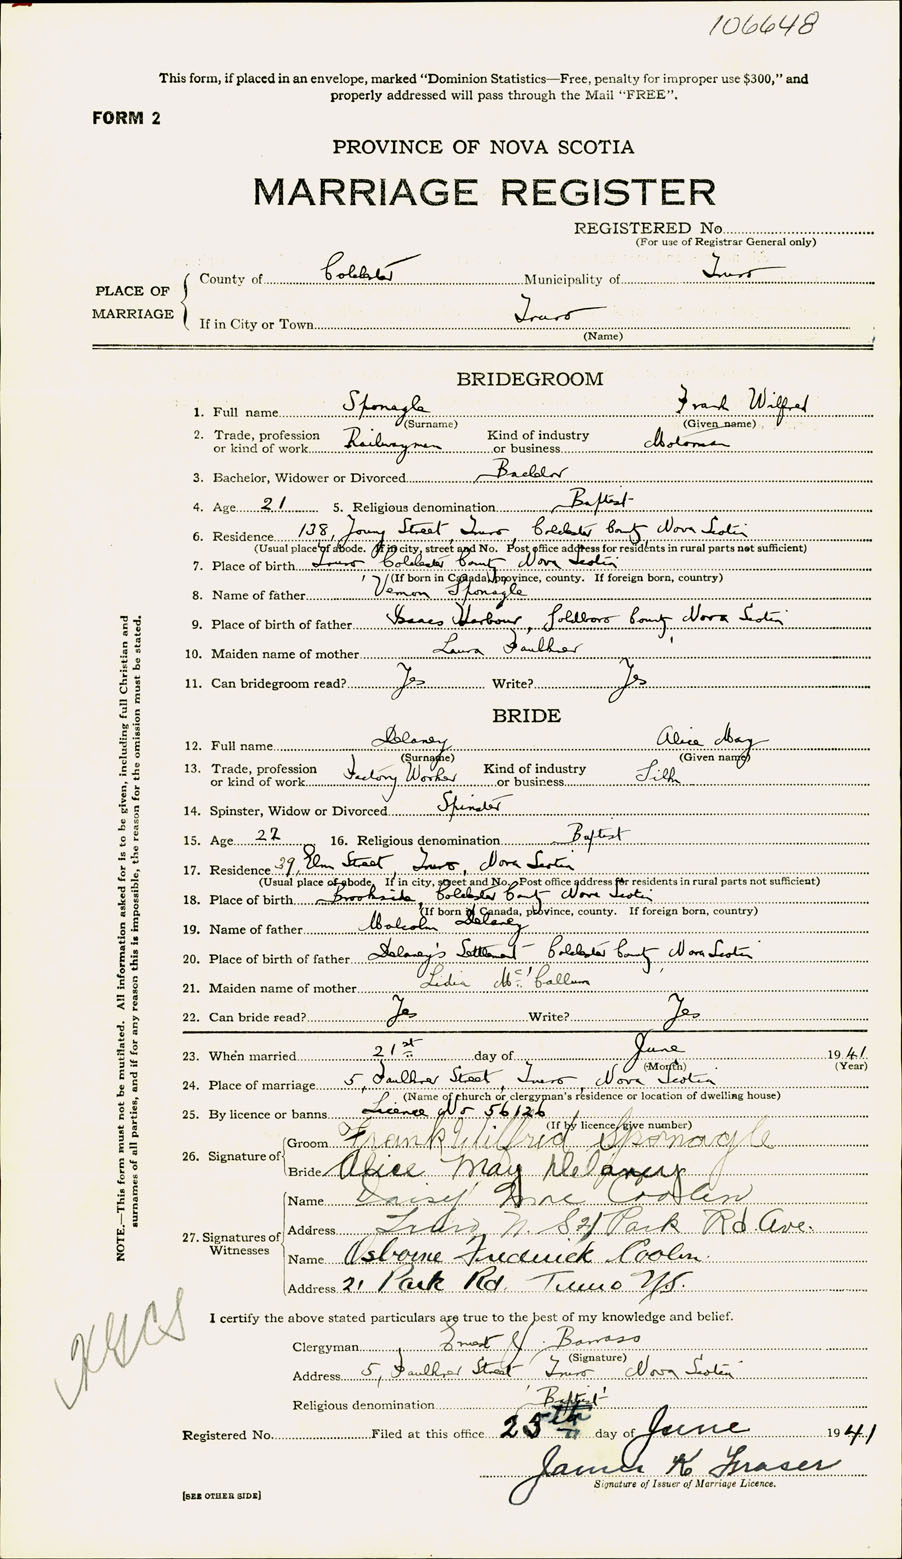 106648
This form, if placed in an envelope, marked "Dominion Statistics—Free, penalty for improper use $300," and
properly addressed will pass through the Mail "FREE".
FORM 2
PROVINCE OF NOVA SCOTIA
MARRIAGE REGISTER
REGISTERED No
(For use of Registrar General only)
PLACE OF MARRIAGE
County of Colchester Municipality of Truro
If in City or Town Truro
(Name)
BRIDEGROOM
1. Full name Sponagle Frank Wilfred
(Surname) (Given name)
2. Trade, profession or kind of work Railwayman Kind of industry or business Motorman
3. Bachelor, Widower or Divorced Bachelor
4. Age 21 5. Religious denomination Baptist
6. Residence 138, Young Street, Truro, Colchester County Nova Scotia
(Usual place of abode. If in city, street and No. Post office address for residents in rural parts not sufficient)
7. Place of birth Truro Colchester County Nova Scotia
(If born in Canada, province, county. If foreign born, country)
8. Name of father Vernon Sponagle
9. Place of birth of father Isaacs Harbour, Goldboro County Nova Scotia
10. Maiden name of mother Laura Faulkner
11. Can bridegroom read? Yes Write? Yes
BRIDE
12. Full name Delaney Alice May
(Surname) (Given name)
13. Trade, profession or kind of work Factory Worker Kind of industry or business Silk
14. Spinster, Widow or Divorced Spinster
15. Age 22 16. Religious denomination Baptist
17. Residence 39, Elm Street, Truro, Nova Scotia
(Usual place of abode. If in city, street and No. Post office address for residents in rural parts not sufficient)
18. Place of birth Brookside, Colchester County Nova Scotia
(If born in Canada, province, county. If foreign born, country)
19. Name of father Malcolm Delaney
20. Place of birth of father Delaney's Settlement Colchester County, Nova Scotia
21. Maiden name of mother Lidia McCallum
22. Can bride read? Yes Write? Yes
23. When married 21st day of June 1941
(Month) (Year)
24. Place of marriage 5, Faulkner Street, Truro, Nova Scotia
(Name of church or clergyman's residence or location of dwelling house)
25. By licence or banns Licence No 56126
(If by licence, give number)
26. Signature of
Groom Frank Wilfrid Sponagle
Bride Alice May Delaney
27. Signatures of Witnesses
Name Daisy Coolen
Address Truro N.S 21 Park Rd Ave.
Name Osborne Frederick Coolen.
Address 21 Park Rd. Truro N.S.
I certify the above stated particulars are true to the best of my knowledge and belief.
Clergyman Ernest J. Barrass
(Signature)
Address 5, Faulkner Street Truro Nova Scotia
Religious denomination Baptist
Registered No. Filed at this office 25th day of June 1941
James K Fraser
Signature of Issuer of Marriage Licence.
[SEE OTHER SIDE]
NOTE.—This form must not be mutilated. All information asked for is to be given, including full Christian and
surnames of all parties, and if for any reason this is impossible, the reason for the omission must be stated.